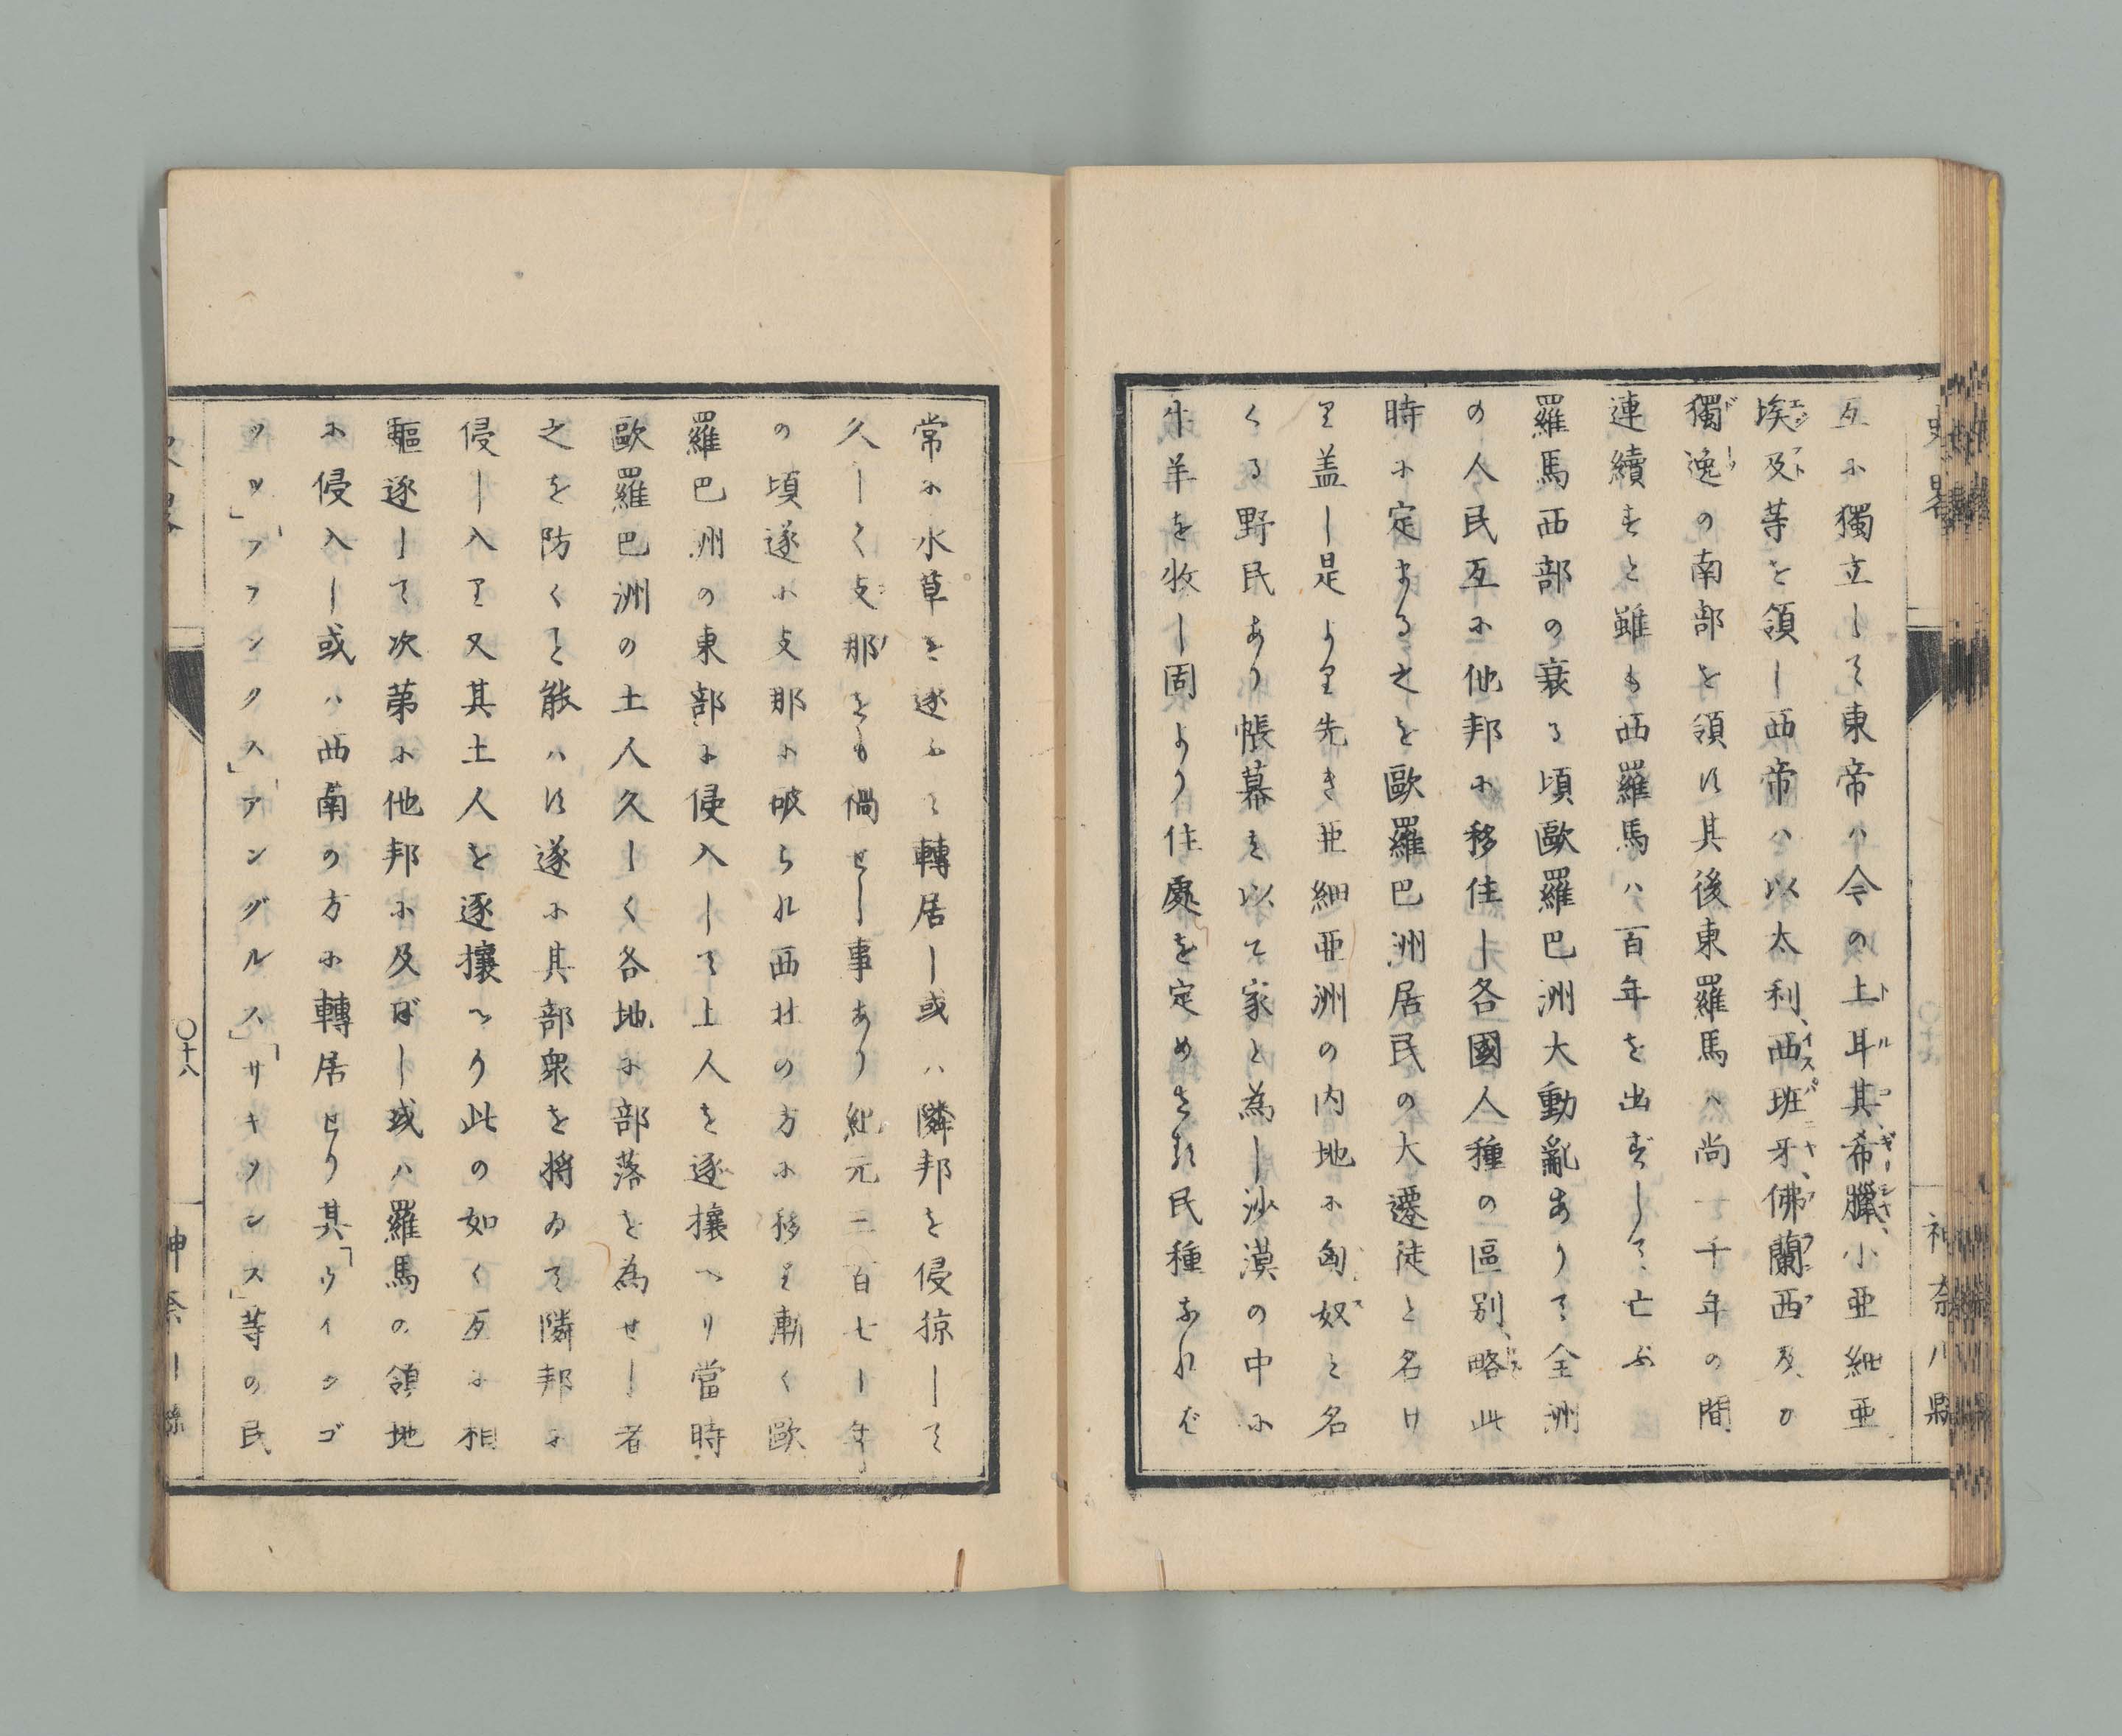 互に獨立して東帝ハ今の上耳其、希臘、小亜細亜
埃及等を領し西帝ハ以太利、西班牙、佛蘭西及び
獨逸の南部を領す其後東羅馬ハ尚一千年の間
連續すと雖も西羅馬ハ百年を出ずして亡ぶ
羅馬西部の衰る頃歐羅巴洲大動亂ありて全洲
の人民互に他邦に移住し各國人種の區別、略此
時に定まる之を歐羅巴洲居民の大遷徒と名け
り盖し是より先き亜細亜洲の内地に匈奴と名
くる野民あり帳幕を以て家と為し沙漠の中に
牛羊を牧し固より住處を定めざる民種なれば
常に水草を逐ふて轉居し或ハ隣邦を侵掠して
久しく支那をも禍せし事あり紀元三百七十年
の頃遂に支那に破られ西北の方に移り漸く歐
羅巴洲の東部に侵入して土人を逐攘へり當時
歐羅巴洲の土人久しく各地に部落を為せし者
之を防くと能ハす遂に其部衆を将ゐて隣邦に
侵し入り又其土人を逐攘へり此の如く互に相
驅逐して次第に他邦に及ぼし或ハ羅馬の領地
に侵入し或ハ西南の方に轉居せり其「ウィシゴ
ッツ」「フランクス」「アングルス」「サキソンス」等の民
史畧
〇十八
神奈川縣